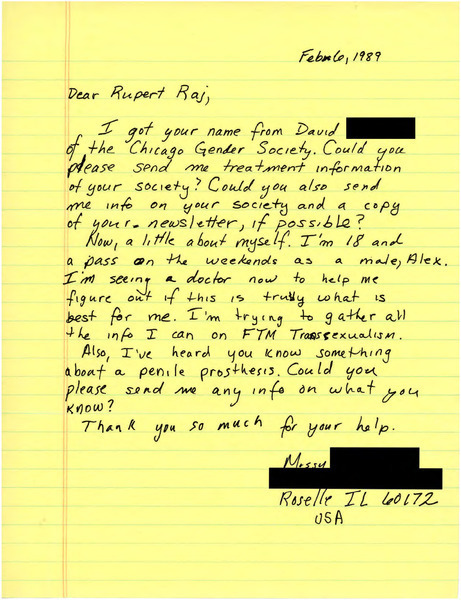 Feb 16, 1989
Dear Rupert Raj,
I got your name from David
of the Chicago Gender Society. Could you
please send me treatment information
of your society? Could you also send
me info on your society and a copy
of your newsletter, if possible?
Now, a little about myself. I'm 18 and
a pass on the weekends as a male, Alex.
I'm seeing a doctor now to help me
figure out if this is truly what is
best for me. I'm trying to gather all
the info I can on FTM Transsexualism.
Also, I've heard you know something
about a penile prosthesis. Could you
please send me any info on what you
know?
Thank you so much for your help.
Roselle IL 60172
USA